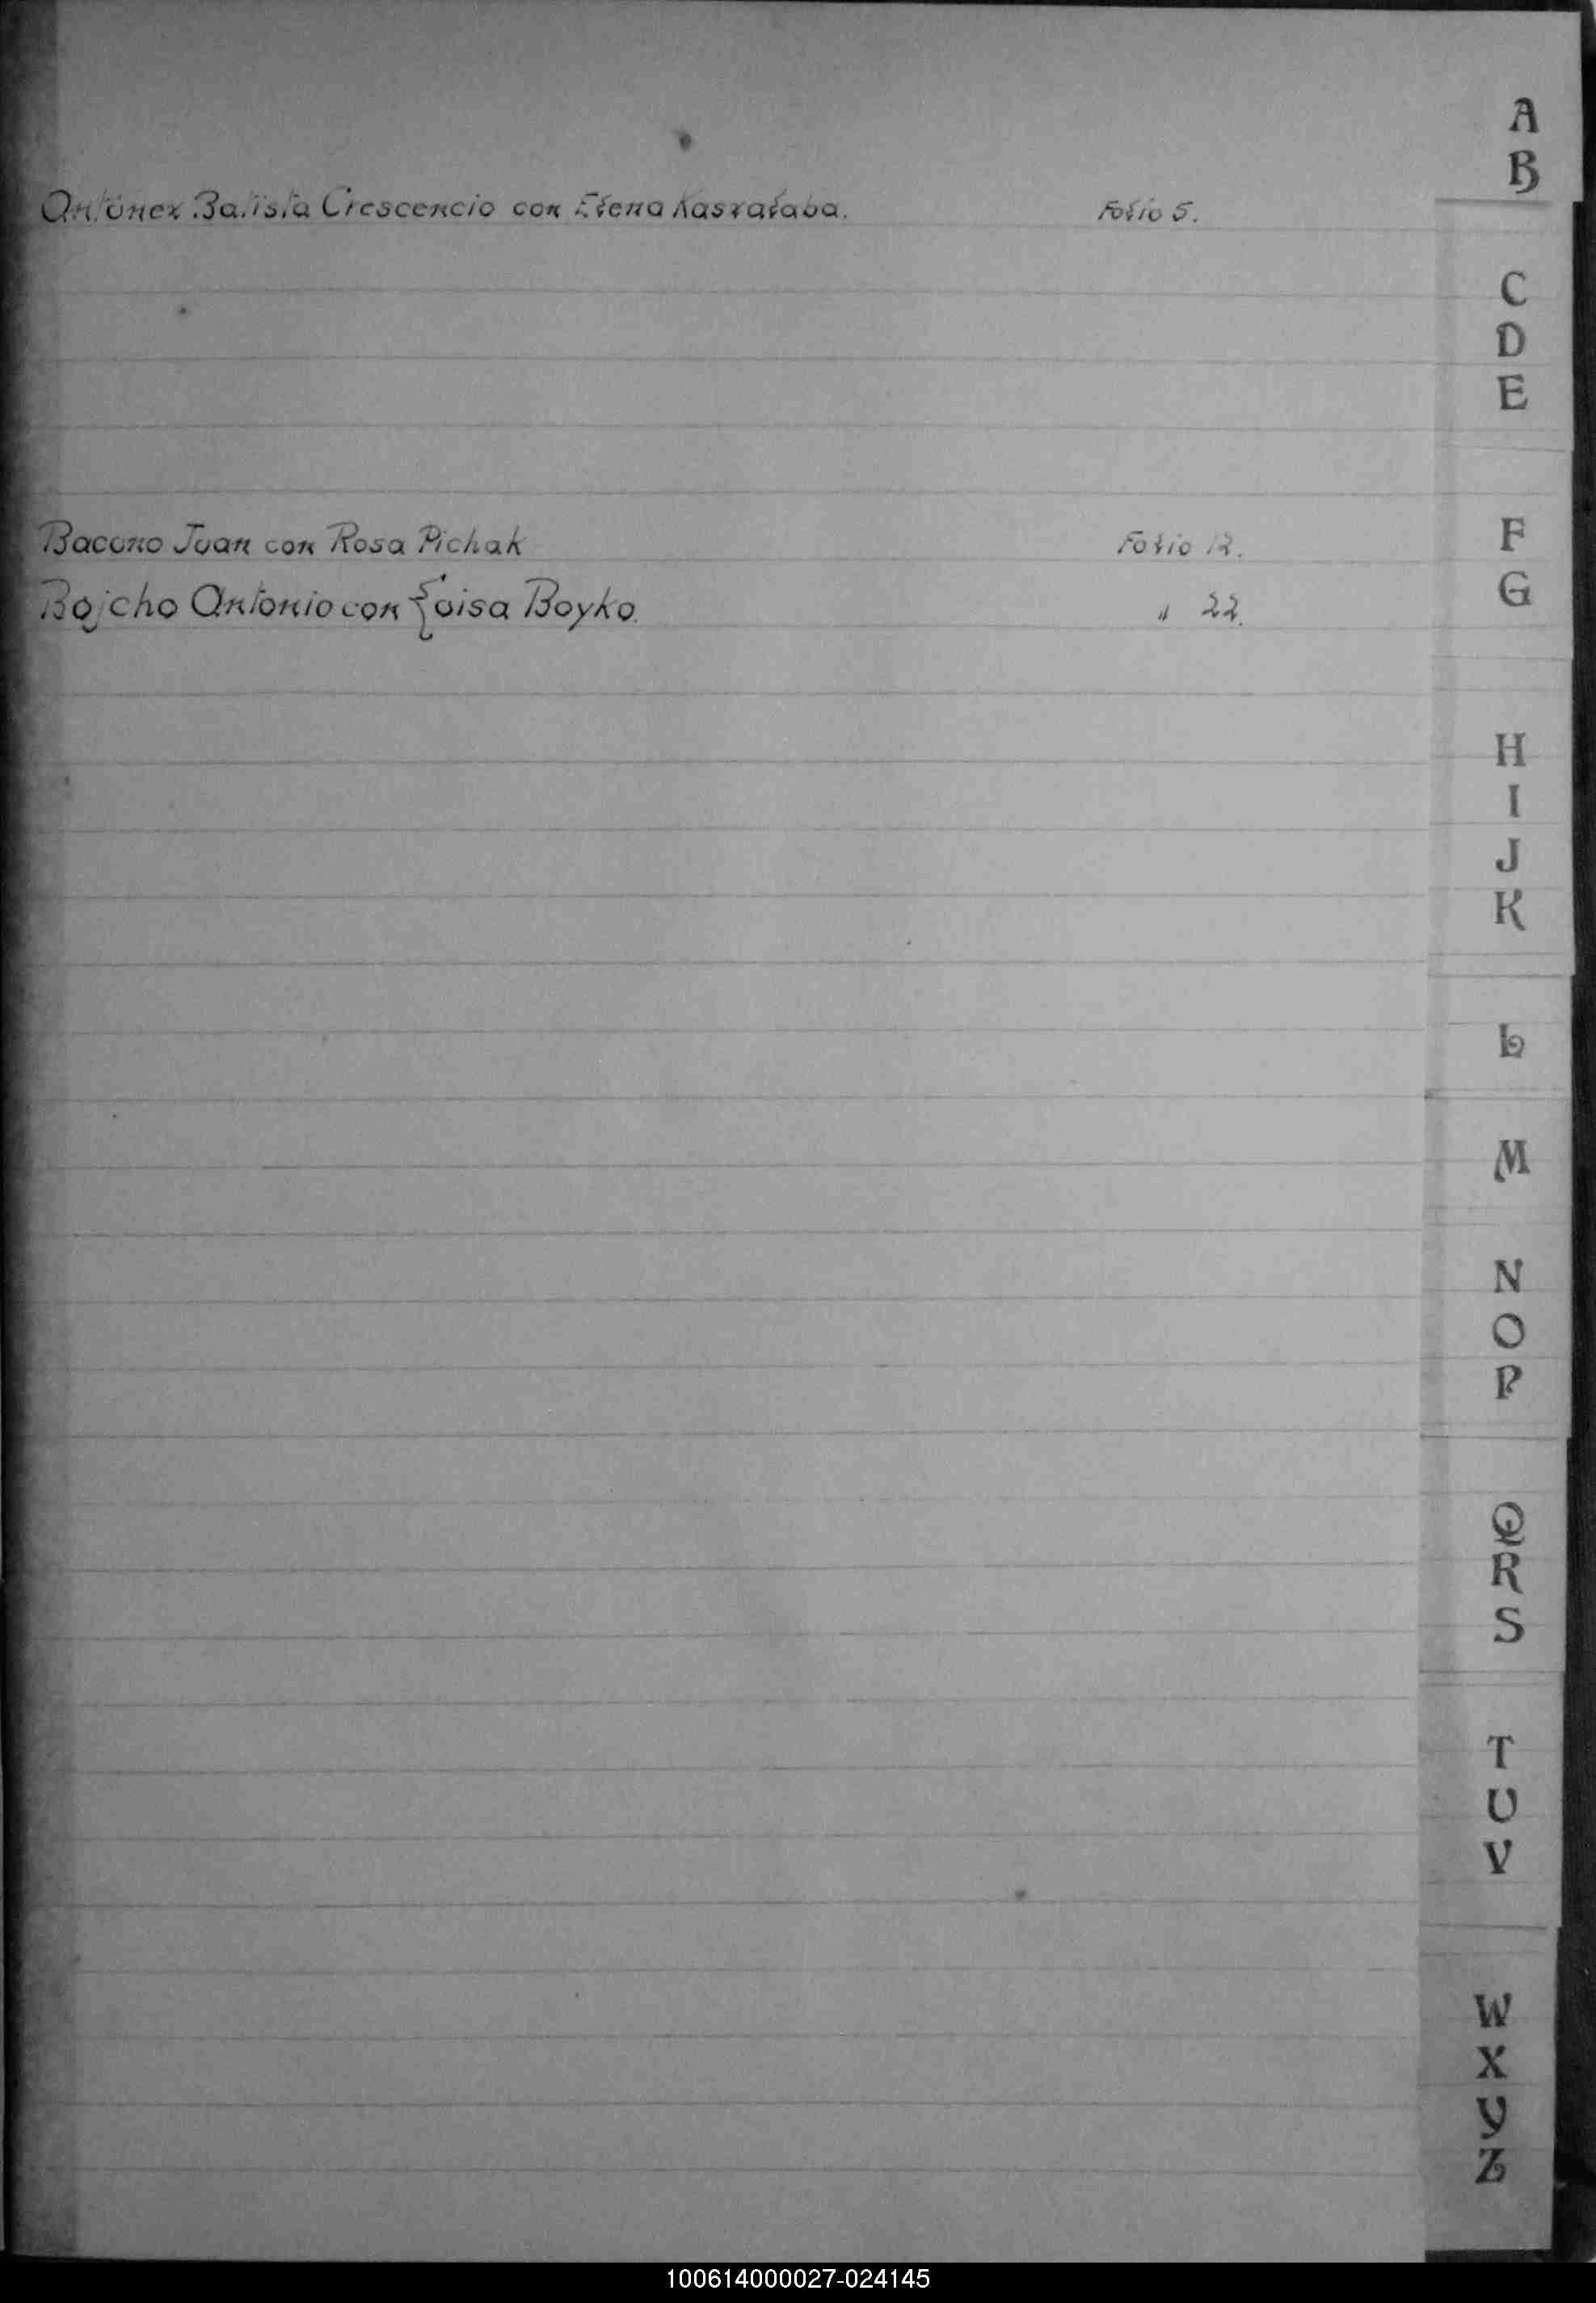 Antúnez Batista Crescencio con Elena Kasralaba. Folio 5.
Bacuno Juan con Rosa Pichak Folio 12.
Bojcho Antonio con Luisa Boyko. " 22.
A
B
C
D
E
F
G
H
I
J
K
L
M
N
O
P
Q
R
S
T
U
V
W
X
Y
Z
100614000027-024145